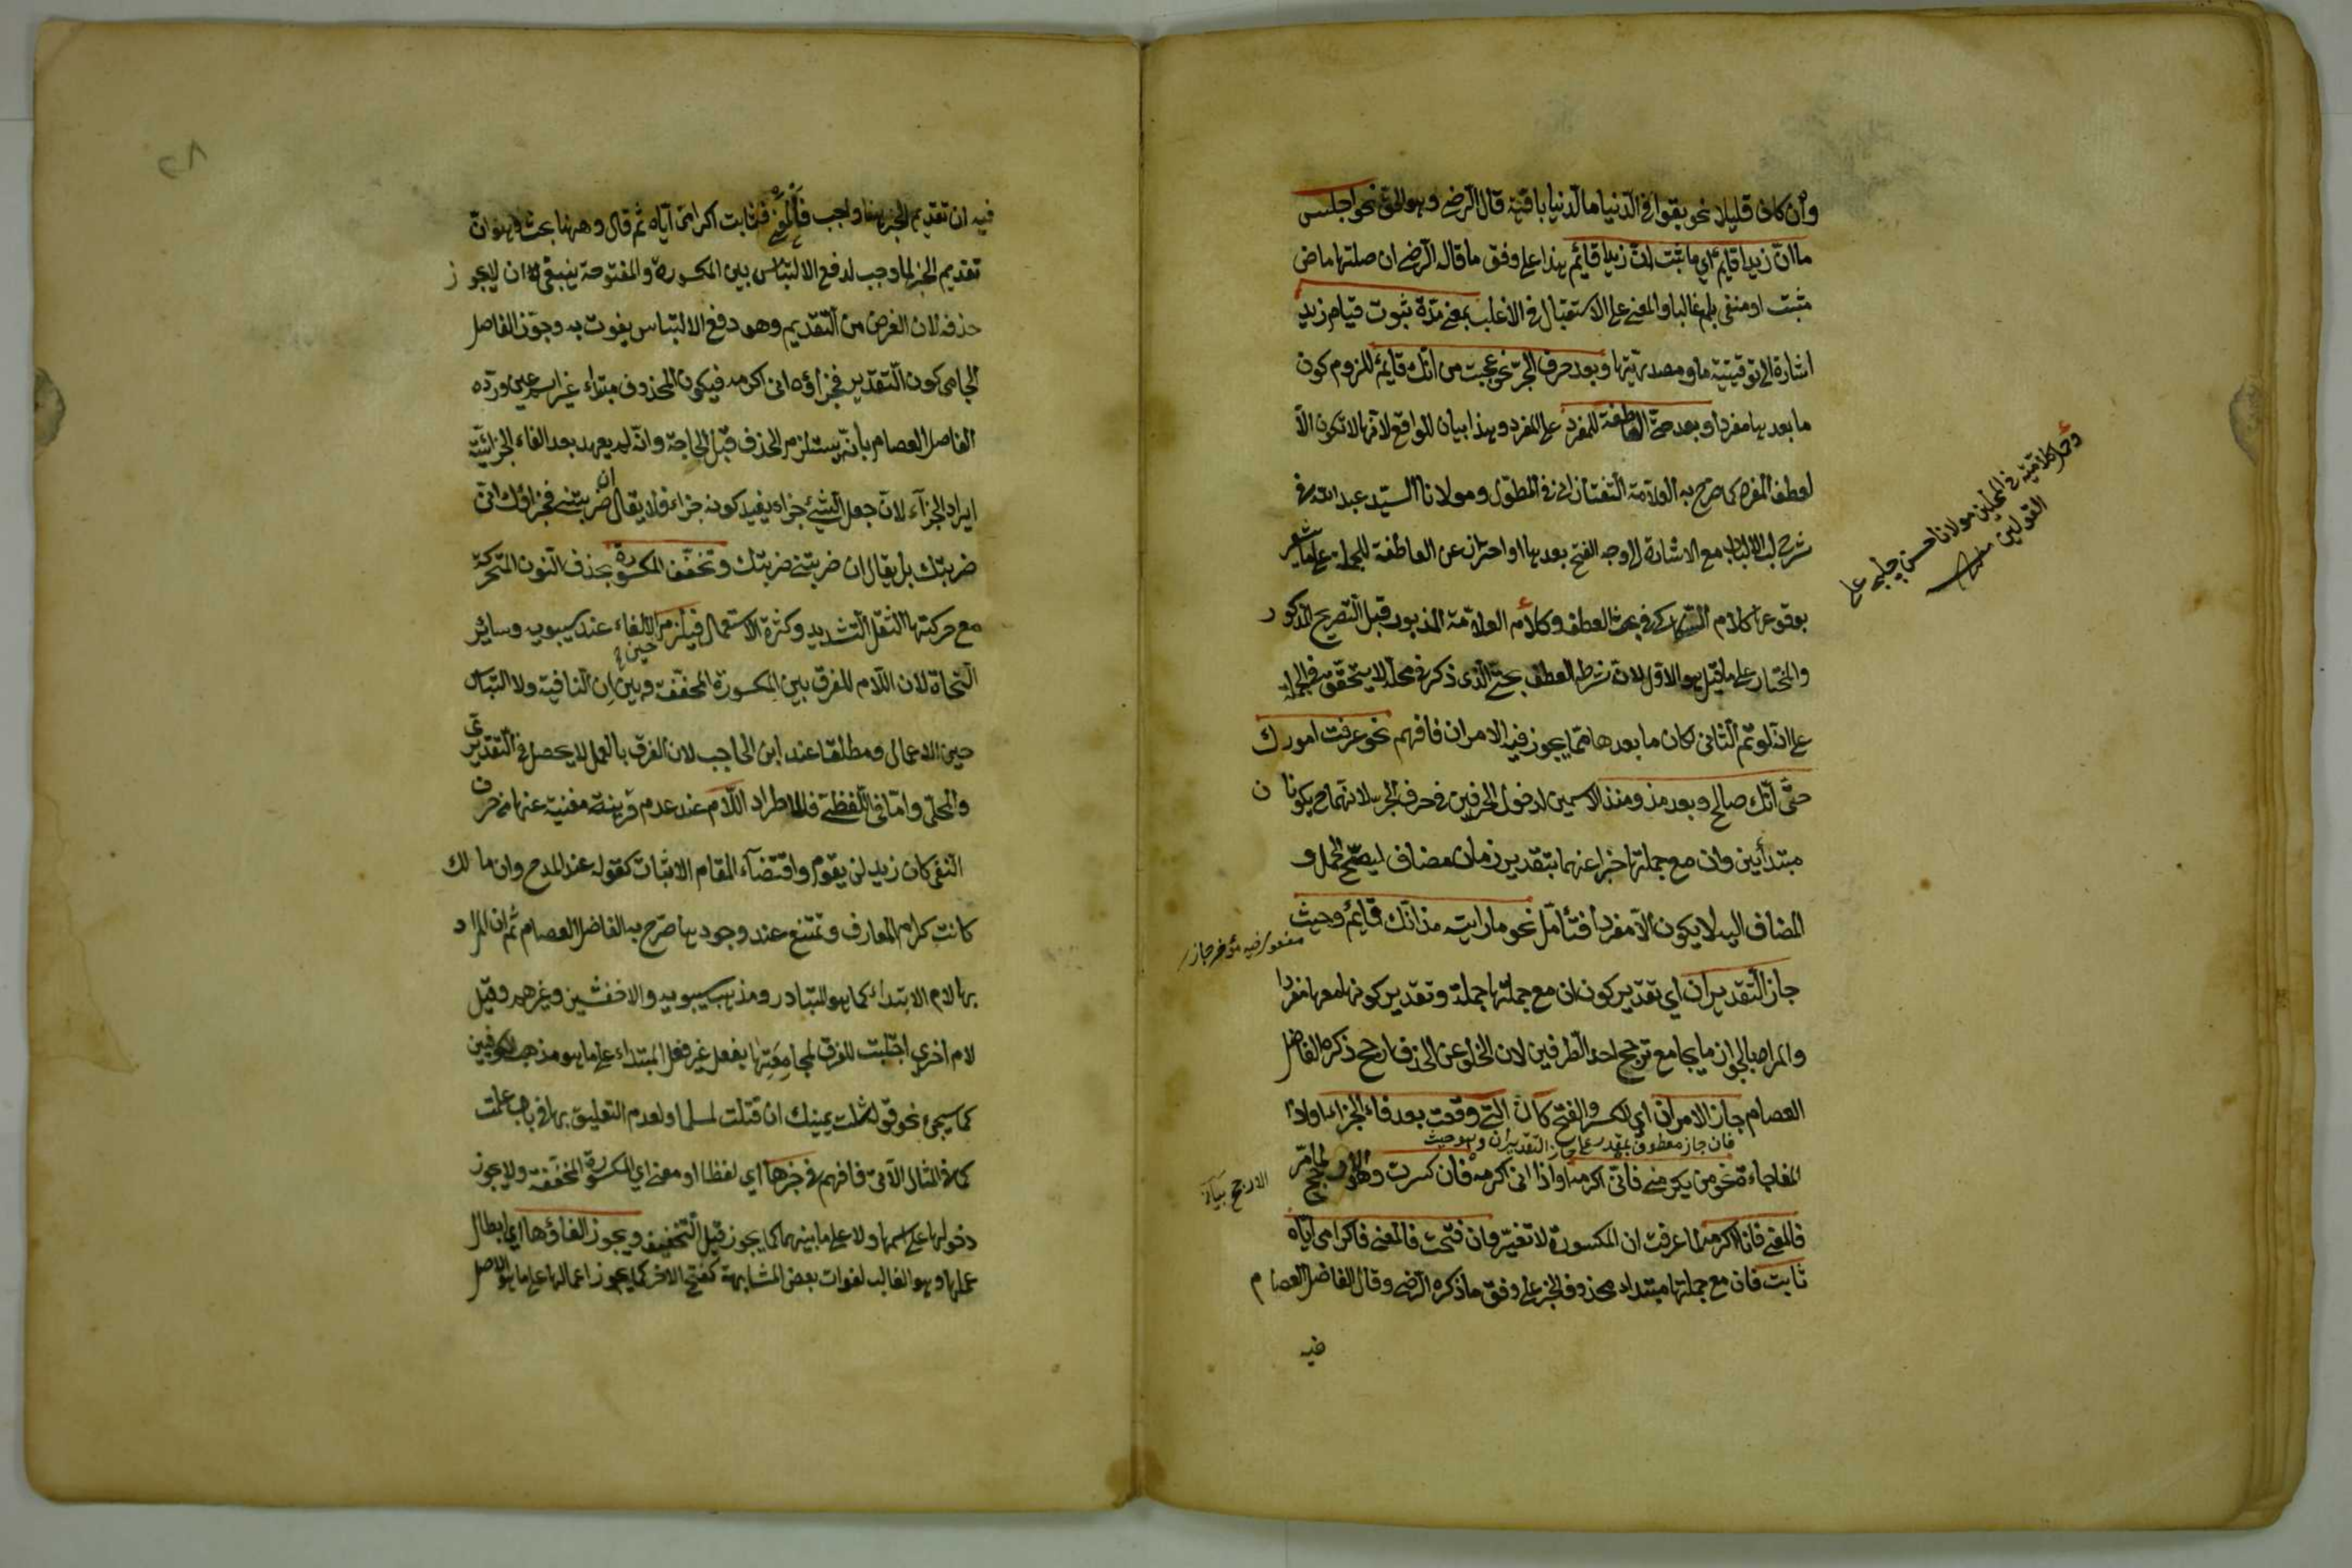 وان كان قليلا نحو بقوا في الدنيا ما الدنيا باقية قال الرضي وهو الحق نحو اجلس
ما ان زيدا قايم اي ما ثبت ان زيدا قائم هذا على وفق ما قاله الرضي ان صلتها ماض
مثبت او منفي بلم غالبا والمعنى على الاستقبال في الاغلب بمعنى مدة ثبوت قيام زيد
اشارة الى توقيتية ما ومصدريتها وبعد حرف الجر نحو عجبت من انك قايم للزوم كون
ما بعدها مفردا وبعد حتى العاطفة للمفرد على المفرد وهذا بيان للواقع لانها لا تكون الا
لعطف المفرد كما صرح به العلامة التفتازاني في المطول ومولانا السيد عبد الله في
شرح لب الالباب مع الاشارة الى وجه الفتح بعدها او احتراز عن العاطفة للجملة على ما يشعر
بوقوعها كلام السكاكي في بحث العطف وكلام العلامة المذبور قبل التصريح المذكور
والمختار على ما قيل هو الاول لان شرط العطف بحتى الذي ذكر في محله لا يتحقق في الجملة
على انه لو تم الثاني لكان ما بعدها مما يجوز فيه الامران فافهم نحو عرفت امورك
حتى انك صالح وبعد مذ ومنذ الاسمين لدخول الحرفين في حرف الجر لانهما ح يكونان
مبتدأين وان مع جملتها خبرا عنهما بتقدير زمان مضاف ليصح الحمل و
المضاف اليه لا يكون الا مفردا فتأمل نحو ما رايته مذ انك قايم وحيث
جاز التقديران اي تقدير كون ان مع جملتها جملة وتقدير كونها معها مفردا
والمراد بالجواز ما يجامع ترجيح احد الطرفين لان الخلو عن الحذف ارجح ذكره الفاضل
العصام جاز الامران اي الكسر والفتح كان التي وقعت بعد فاء الجزاء او اذا
فان جاز معطوف بمقدر على جاز التقديران وهو حيث
المفاجاءة نحو من يكرمني فاني اكرمه او اذا اني اكرمه فان كسرت وهو الارجح لما مر
فالمعنى فانا اكرمه لما عرفت ان المكسورة لا تغير وان فتحت فالمعنى فاكرامي اياه
ثابت فان مع جملتها مبتداء محذوف الخبر على وفق ما ذكره الرضي وقال الفاضل العصام
فيه
كلامية في المحلين مولانا حسن چلبي على
القولين منه
مفعول فيه مؤخر جاز
الارجح
فيه ان تقديم الخبر ههنا واجب فالمعنى فثابت اكرامي اياه ثم قال وههنا بحث وهو ان
تقديم الخبر لما وجب لدفع الالتباس بين المكسورة والمفتوحة ينبغي ان لا يجوز
حذفه لان الغرض من التقديم وهو دفع الالتباس يفوت به وجوز الفاضل
الجامي كون التقدير فجزاؤه اني اكرمه فيكون المحذوف مبتداء ورده
الفاضل العصام بأنه يستلزم الحذف قبل الحاجة وانه لم يعهد بعد الفاء الجزائية
ايراد الجزآء لان جعل الشيء جزاء يفيد كونه جزاء فلا يقال ان ضربتني فجزاؤك اني
ضربتك بل يقال ان ضربتني ضربتك وتخفف المكسورة بحذف النون المتحركة
مع حركتها لثقل التشديد وكثرة الاستعمال فيلزم اللام حين الالغاء عند سيبويه وسائر
النحاة لان اللام للفرق بين المكسورة المخففة وبين ان النافية ولا التباس
حين الاعمال ومطلقا عند ابن الحاجب لان الفرق بالعمل لا يحصل في التقديري
والمحلي واما في اللفظي فللاطراد اللام عند عدم قرينة مغنية عنها من حرف
النفي كان زيد لن يقوم واقتضآء المقام الاثبات كقوله عند المدح وان مالك
كانت كرام المعارف وتمتنع عند وجودها صرح به الفاضل العصام ثم ان المراد
بها لام الابتداء كما هو المتبادر ومذهب سيبويه والاخفشين وغيرهم وقيل
لام اخرى اجتلبت للفرق لمجامعتها بفعل غير فعل المبتداء على ما هو مذهب الكوفيين
كما سيجيء نحو قوله شلت يمينك ان قتلت لمسلما ولعدم التعليق بها في باب علمت
كما في المثال الآتي فافهم في خبرها اي لفظا او معنى اي المكسورة المخففة ولا يجوز
دخولها على اسمها ولا على ما بينهما كما يجوز قبل التخفيف ويجوز الغاؤها اي ابطال
عملها وهو الغالب لفوات بعض المشابهة كفتح الاخر كما يجوز اعمالها على ما هو الاصل
٢٨